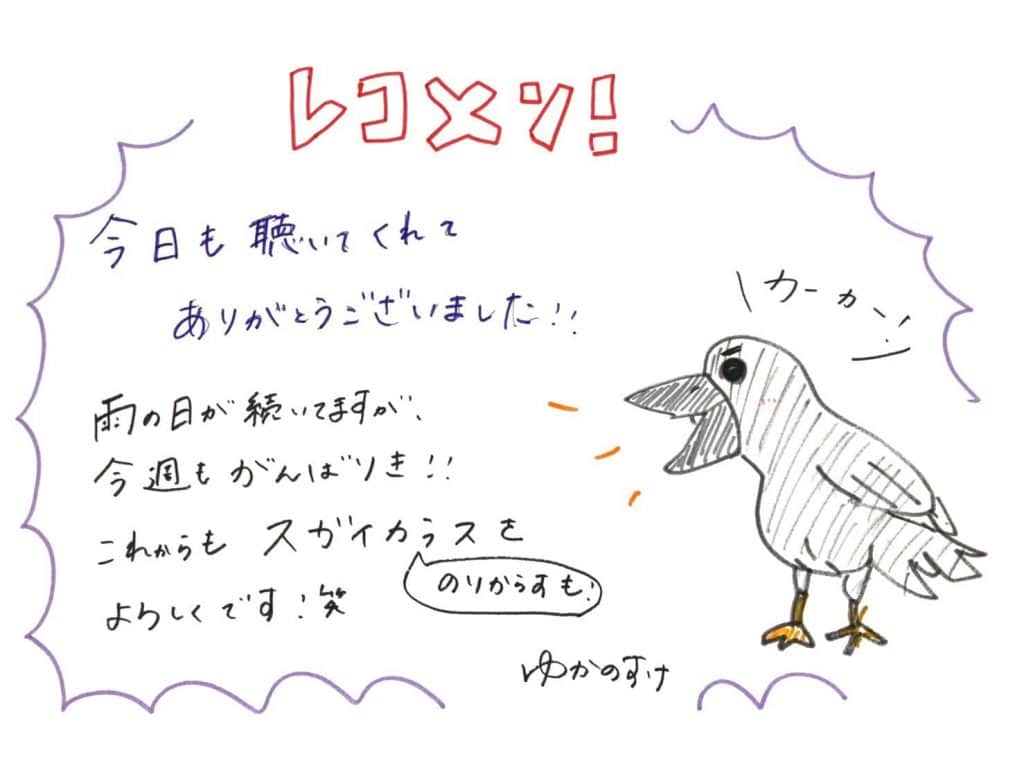 レコメン!
今日も聴いてくれて
ありがとうございました!!
カーカー!
雨の日が続いてますが、
今週もがんばりき!!
これからも スガイカラスを
のりからすも!
よろしくです!笑
ゆかのすけ